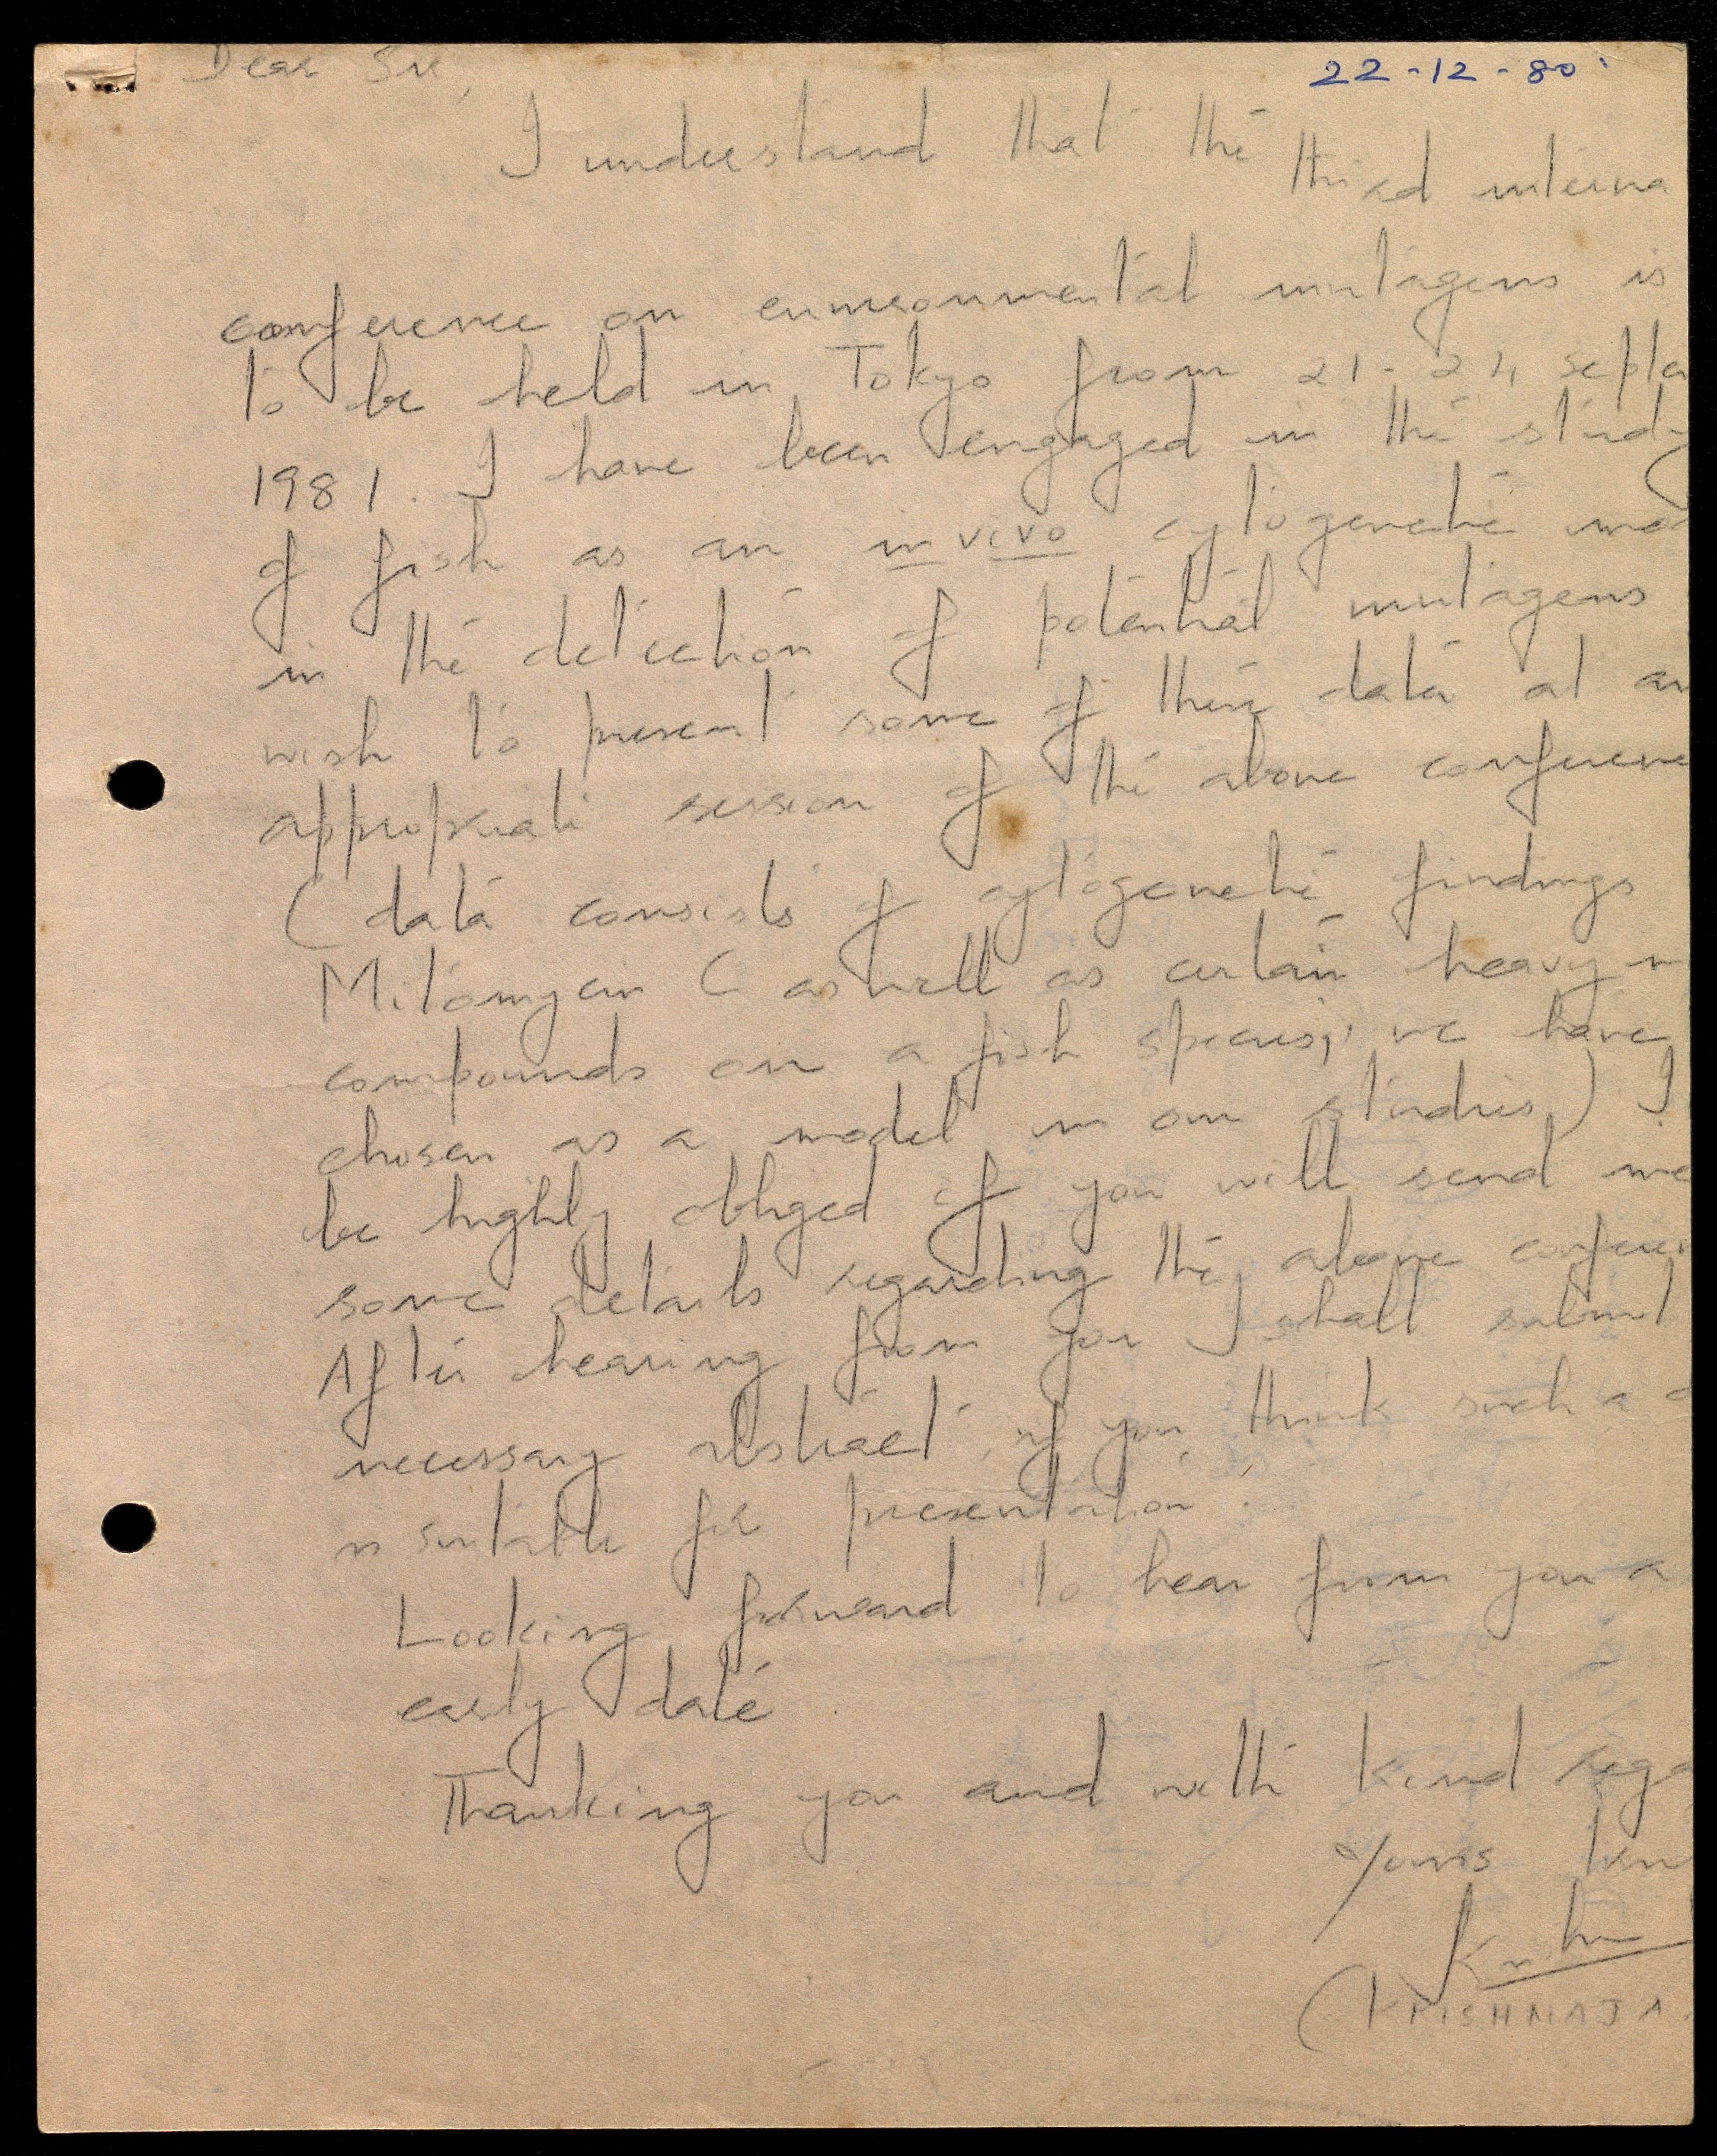 Dear Sir,
22-12-80
I understand that the third interna
conference on environmental mutagens is
to be held in Tokyo from 21-24 septe
1981. I have been engaged in the study
of fish as an in vivo cytogenetic mo
in the detection of potential mutagens
wish to present some of this data at an
appropriate session of the above conferenc
(data consists of cytogenetic findings
Mitomycin C as well as certain heavy m
compounds on a fish species, we have
chosen as a model in our studies) I
be highly obliged if you will send me
some details regarding the above conferen
After hearing from you I shall submit
necessary abstract, if you think such a
is suitable for presentation.
Looking forward to hear from you a
early date.
Thanking you and with kind rega
Yours
(KRISHNAJA.